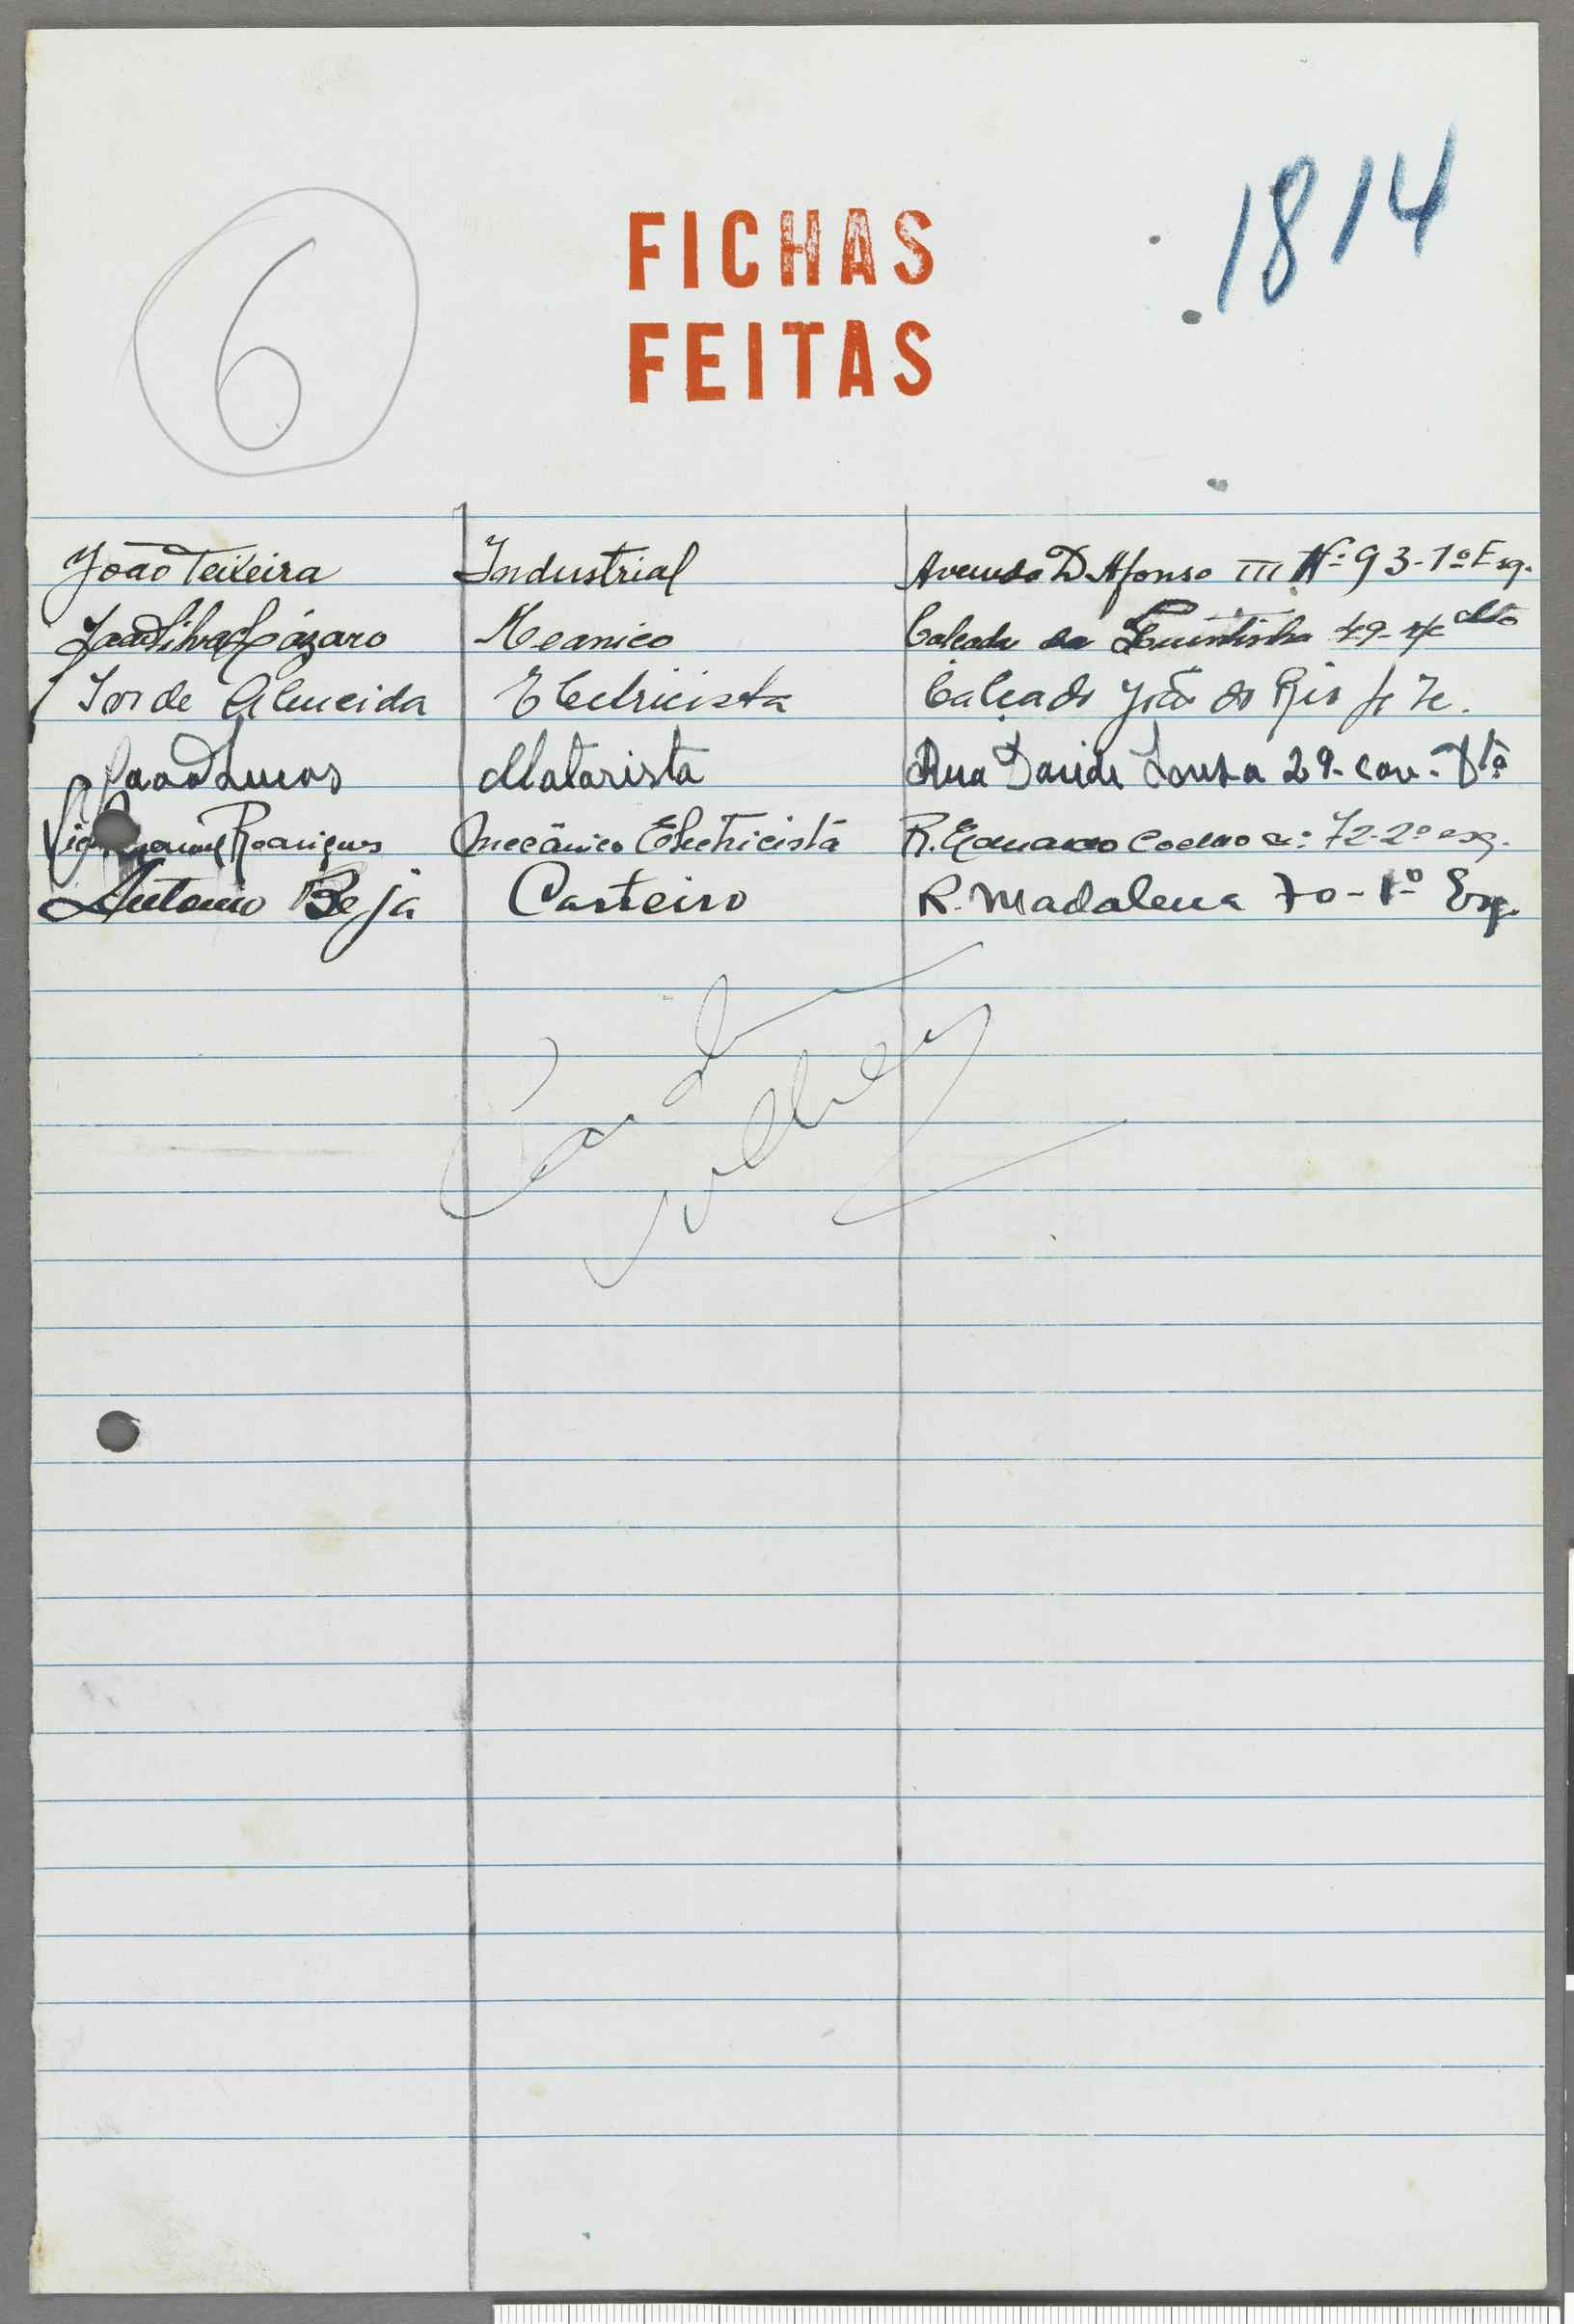 1814
6
FICHAS
FEITAS
João Teixeira Industrial Avenida D. Afonso III Nº 93-1º Esq.
João Silva Lázaro Mecanico Calçada da Quintinha 49-r/c dto
de Almeida Electricista Calçada João do Rio
João Lucas Matarista Rua David Sousa 29-cav. Dtº
Rodrigues Mecânico Eletricista R. Eduardo Coelho nº 72-2º esq.
Antonio Beja Carteiro R. Madalena 70-1º Esq.